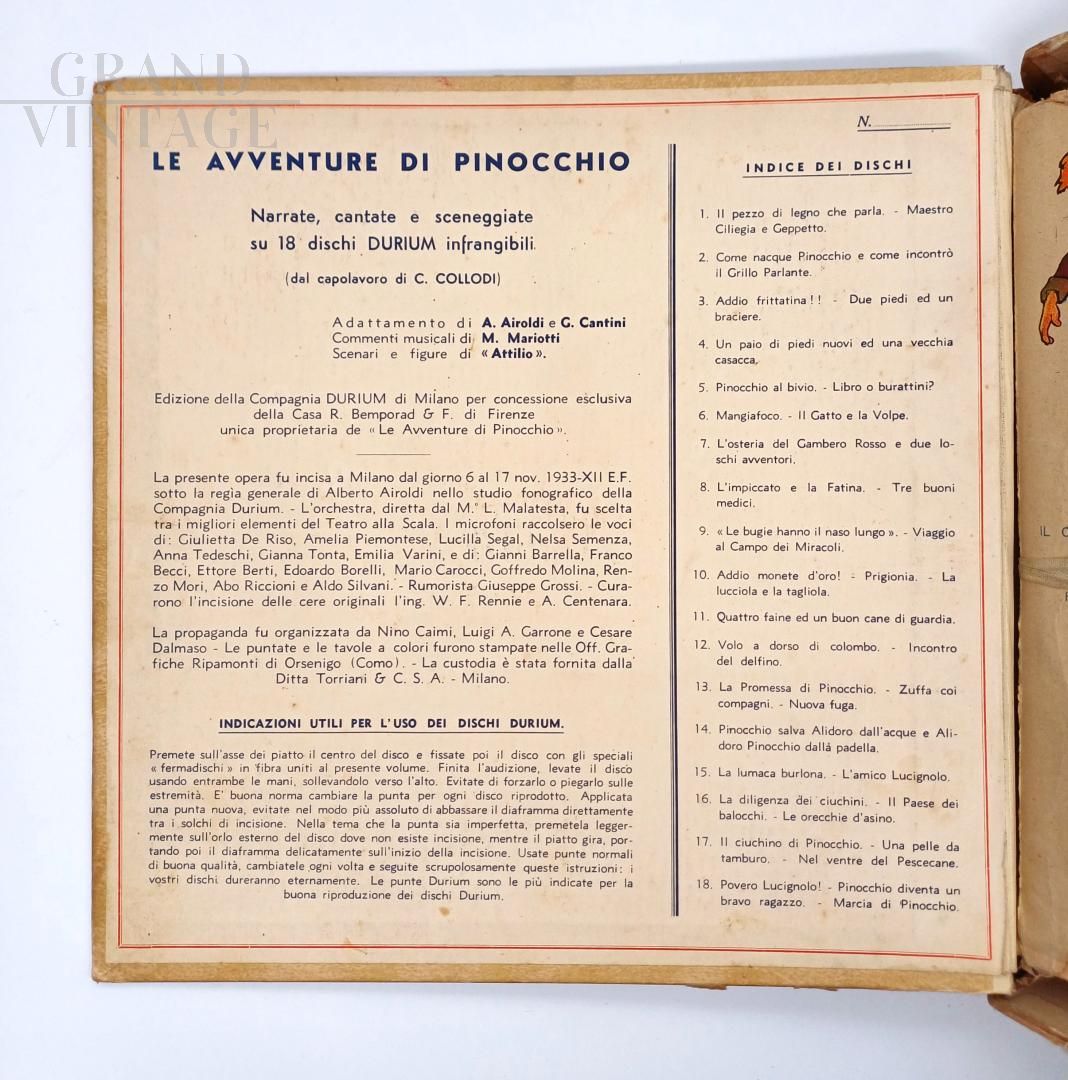 GRAND
VINTAGE
LE AVVENTURE DI PINOCCHIO
Narrate, cantate e sceneggiate
su 18 dischi DURIUM infrangibili
(dal capolavoro di C. COLLODI)
Adattamento di A. Airoldi e G. Cantini
Commenti musicali di M. Mariotti
Scenari e figure di « Attilio ».
Edizione della Compagnia DURIUM di Milano per concessione esclusiva
della Casa R. Bemporad & F. di Firenze
unica proprietaria de « Le Avventure di Pinocchio ».
La presente opera fu incisa a Milano dal giorno 6 al 17 nov. 1933-XII E.F.
sotto la regia generale di Alberto Airoldi nello studio fonografico della
Compagnia Durium. - L'orchestra, diretta dal M.° L. Malatesta, fu scelta
tra i migliori elementi del Teatro alla Scala. I microfoni raccolsero le voci
di: Giulietta De Riso, Amelia Piemontese, Lucilla Segal, Nelsa Semenza,
Anna Tedeschi, Gianna Tonta, Emilia Varini, e di: Gianni Barrella, Franco
Becci, Ettore Berti, Edoardo Borelli, Mario Carocci, Goffredo Molina, Ren-
zo Mori, Abo Riccioni e Aldo Silvani. - Rumorista Giuseppe Grossi. - Cura-
rono l'incisione delle cere originali l'ing. W. F. Rennie e A. Centenara.
La propaganda fu organizzata da Nino Caimi, Luigi A. Garrone e Cesare
Dalmaso - Le puntate e le tavole a colori furono stampate nelle Off. Gra-
fiche Ripamonti di Orsenigo (Como). - La custodia è stata fornita dalla
Ditta Torriani & C. S. A. - Milano.
INDICAZIONI UTILI PER L'USO DEI DISCHI DURIUM.
Premete sull'asse dei piatto il centro del disco e fissate poi il disco con gli speciali
« fermadischi » in fibra uniti al presente volume. Finita l'audizione, levate il disco
usando entrambe le mani, sollevandolo verso l'alto. Evitate di forzarlo o piegarlo sulle
estremità. E' buona norma cambiare la punta per ogni disco riprodotto. Applicata
una punta nuova, evitate nel modo più assoluto di abbassare il diaframma direttamente
tra i solchi di incisione. Nella tema che la punta sia imperfetta, premetela legger-
mente sull'orlo esterno del disco dove non esiste incisione, mentre il piatto gira, por-
tando poi il diaframma delicatamente sull'inizio della incisione. Usate punte normali
di buona qualità, cambiatele ogni volta e seguite scrupolosamente queste istruzioni: i
vostri dischi dureranno eternamente. Le punte Durium sono le più indicate per la
buona riproduzione dei dischi Durium.
N.
INDICE DEI DISCHI
1. Il pezzo di legno che parla. - Maestro
Ciliegia e Geppetto.
2. Come nacque Pinocchio e come incontrò
il Grillo Parlante.
3. Addio frittatina!! - Due piedi ed un
braciere.
4. Un paio di piedi nuovi ed una vecchia
casacca.
5. Pinocchio al bivio. - Libro o burattini?
6. Mangiafoco. - Il Gatto e la Volpe.
7. L'osteria del Gambero Rosso e due lo-
schi avventori.
8. L'impiccato e la Fatina. - Tre buoni
medici.
9. « Le bugie hanno il naso lungo ». - Viaggio
al Campo dei Miracoli.
10. Addio monete d'oro! - Prigionia. - La
lucciola e la tagliola.
11. Quattro faine ed un buon cane di guardia.
12. Volo a dorso di colombo. - Incontro
del delfino.
13. La Promessa di Pinocchio. - Zuffa coi
compagni. - Nuova fuga.
14. Pinocchio salva Alidoro dall'acque e Ali-
doro Pinocchio dalla padella.
15. La lumaca burlona. - L'amico Lucignolo.
16. La diligenza dei ciuchini. - Il Paese dei
balocchi. - Le orecchie d'asino.
17. Il ciuchino di Pinocchio. - Una pelle da
tamburo. - Nel ventre del Pescecane.
18. Povero Lucignolo! - Pinocchio diventa un
bravo ragazzo. - Marcia di Pinocchio.
IL